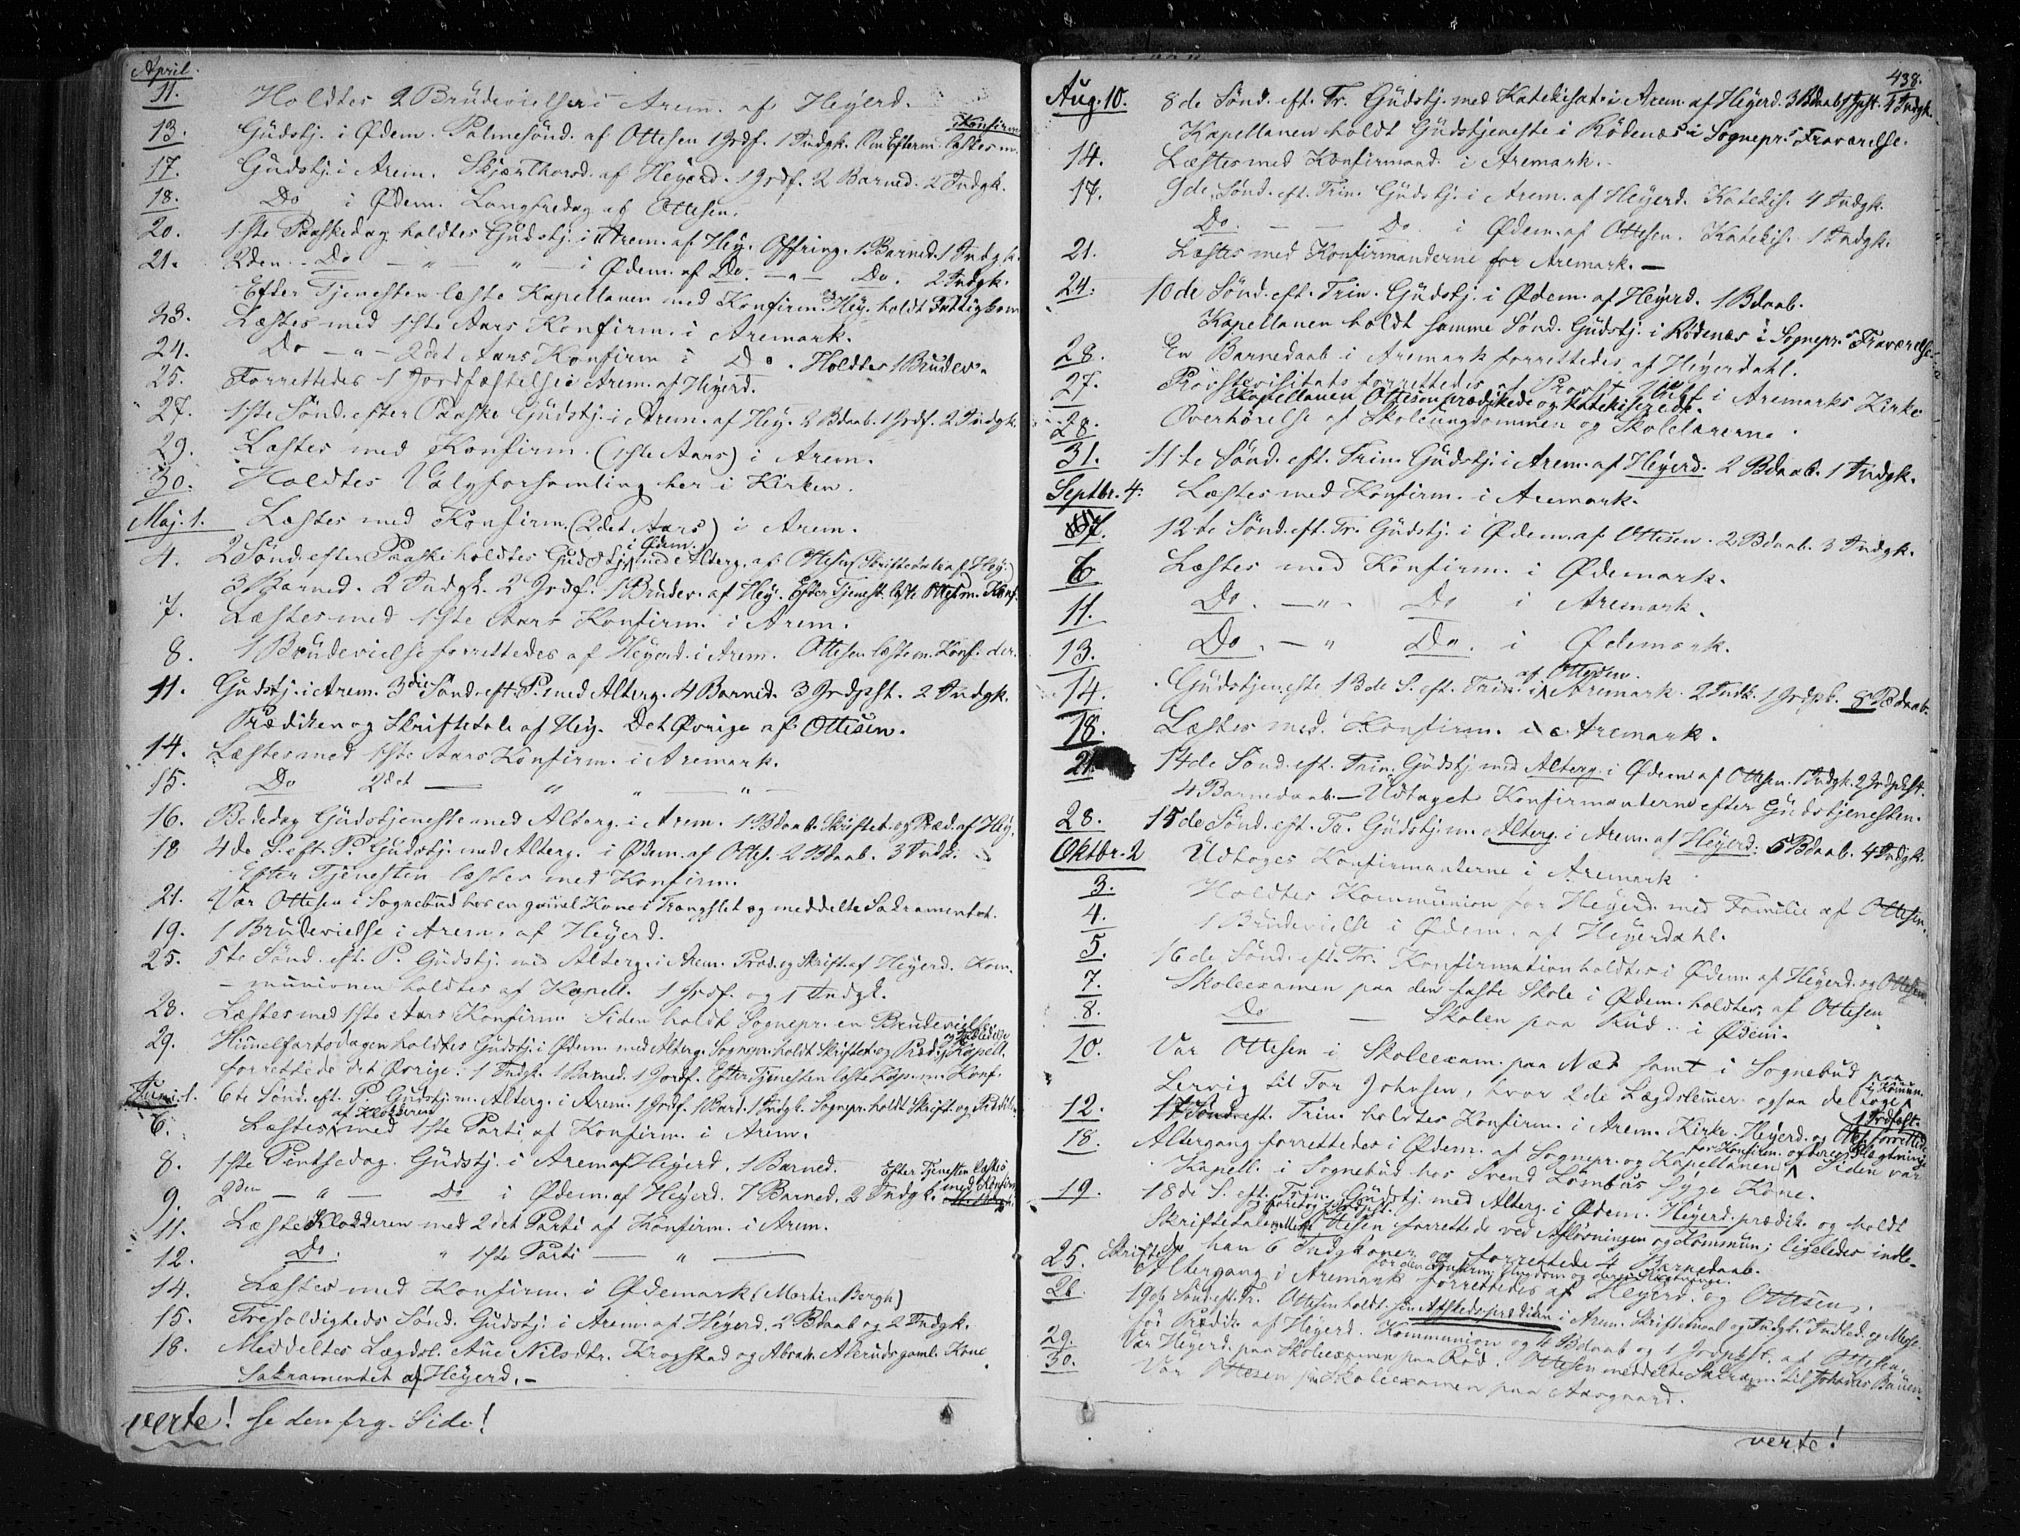 April.
11. Holdtes 2 Brudevielser i Arem. af Heyerd.
13. Gudstj. i Ødem. Palmesönd. af Ottesen 1 Jrdf. 1 Indgk. Om Efterm. læstes m. Konfirm.
17. Gudstj. i Arem. Skjærthorsd. af Heyerd. 1 Jrdf. 2 Barned. 2 Indgk.
18. Do i Ødem. Langfredag af Ottesen.
20. 1ste Paaskedag holdtes Gudstj. i Arem. af Hey. Offring. 1 Barned. 1 Indgk.
21. 2den Do — " — " — i Ødem. af Do. — " — Do. 2 Indgk.
Efter Tjenesten læste Kapellanen med Konfirm. og Hey. holdt Fattigkom.
23. Læstes med 1ste Aars Konfirm. i Aremark.
24. Do — " — 2det Aars Konfirm i Do. Holdtes 1 Brudev.
25. Forrettedes 1 Jordfæstelse i Arem. af Heyerd.
27. 1ste Sönd. efter Paaske Gudstj. i Arem. af Hey. 2 Bdaab. 1 Jrdf. 2 Indgk.
29. Læstes med Konfirm. (1ste Aars) i Arem.
30. Holdtes Valgforsamling her i Kirken.
Maj. 1. Læstes med Konfirm. (2det Aars) i Arem.
4. 2 Sönd. efter Paaske holdtes Gudstj. i Ødem. med Alterg. af Ottesen (Skriftetale af Hey.)
3 Barned. 2 Indgk. 2 Jrdf. 1 Brudev. af Hey. Efter Tjenest. læste Ottes. m. Konf.
7. Læstes med 1ste Aars Konfirm. i Arem.
8. 1 Brudevielse forrettedes af Heyerd. i Arem. Ottesen læste m. Konf. der.
11. Gudstj. i Arem. 3die Sönd. eft. P. med Alterg. 4 Barned. 3 Jrdfst. 2 Indgk.
Prædiken og Skriftetale af Hey. Det Øvrige af Ottesen.
14. Læstes med 1ste Aars Konfirm. i Aremark.
15. Do 2det — " " — " —
16. Bededag Gudstjeneste med Alterg. i Arem. 1 Bdaab. Skriftet. og Præd. af Hey.
18 4de S. eft. P. Gudstj. med Alterg. i Ødem. af Ottes. 2 Bdaab. 3 Indk.
Efter Tjenesten læstes med Konfirm.
21. Var Ottesen i Sognebud hos en gammel Kone i Trangslet og meddelte Sakramentet.
19. 1 Brudevielse i Arem. af Heyerd.
25. 5te Sönd. eft. P. Gudstj. med Alterg. i Arem. Præd. og Skrift af Heyerd. Kom-
munionen holdtes af Kapell. 1 Jrdf. og 1 Indgk.
28. Læstes med 1ste Aars Konfirm. Siden holdt Sognepr. en Brudevielse
29. Himmelfartsdagen holdtes Gudstj. i Ødem. med Alterg. Sognepr. holdt Skriftet. og Præd. Kapell.
forrettede det Øvrige. 1 Indgk. 1 Barned. 1 Jordf. Efter Tjenesten læste Kap. m. Konf.
Juni. 1. 6te Sönd. eft. P. Gudstj. m. Alterg. i Arem. 1 Jrdf. 1 Barnd. 1 Indgk. Sognepr. holdt Skrift. og Prædik.
6. Læstes af Klokkeren med 1ste Parti af Konfirm. i Arem.
8. 1ste Pintsedag. Gudstj. i Arem. af Heyerd. 1 Barned.
9. 2den — " — Do i Ødem. af Heyerd. 7 Barned. 2 Indgk. Efter Tjenesten læstes med Konfirm.
11. Læste Klokkeren med 2det Parti af Konfirm. i Arem.
12. Do. " 1ste Parti — " —
14. Læstes med Konfirm. i Ødemark (Martin Bergh)
15. Trefoldigheds Sönd. Gudstj. i Arem. af Heyerd. 2 Bdaab og 2 Indgk.
18. Meddeltes Lægdsl. Ane Nilsdtr. Krogstad og Abrah. Akeruds gaml. Kone
Sakramentet af Heyerd. —
verte! se den frg. Side!
438.
Aug. 10. 8de Sönd. eft. Tr. Gudstj. med Katekisat. i Arem. af Heyerd. 3 Bdaab 1 Jfst. 4 Indgk.
Kapellanen holdt Gudstjeneste i Rödenæs i Sognepr.s Fraværelse.
14. Læstes med Konfirmand. i Aremark.
17. 9de Sönd. eft. Trin. Gudstj. i Arem. af Heyerd. Katekis. 4 Indgk.
Do. — — Do. i Ødem. af Ottesen. Katekis. 1 Indgk.
21. Læstes med Konfirmanderne for Aremark. —
24. 10de Sönd. eft. Trin. Gudstj. i Ødem. af Heyerd. 1 Bdaab.
Kapellanen holdt samme Sönd. Gudstj. i Rödenæs i Sognepr.s Fraværelse
28. En Barnedaab i Aremark forrettedes af Heyerdahl.
27. Provstevisitats forrettedes af Provst i Aremarks Kirke
Kapellanen Ottesen prædikede og katekiserede.
28. Overhörelse af Skoleungdommen og Skolelærerne.
31. 11te Sönd. eft. Trin. Gudstj. i Arem. af Heyerd. 2 Bdaab. 1 Indgk.
Septbr. 4. Læstes med Konfirm. i Aremark.
7. 12te Sönd. eft. Tr. Gudstj. i Ødem. af Ottesen. 2 Bdaab. 3 Indgk.
6 Læstes med Konfirm. i Ødemark.
11. Do. — " — Do i Aremark.
13. Do. — " Do. i Ødemark.
14. Gudstjeneste 13de S. eft. Trin. i Aremark af Ottesen. 2 Indk. 1 Jrdpk. 8 Bdaab.
18. Læstes med Konfirm. i Aremark.
21. 14de Sönd. eft. Trin. Gudstj. med Alterg. i Ødem. af Ottesen. 1 Indgk. 2 Jrdpkst.
4 Barnedaab. — Udtaget Konfirmanterne efter Gudstjenesten.
28. 15de Sönd. eft. Tr. Gudstj. m. Alterg. i Arem. af Heyerd. 5 Bdaab. 4 Indgk.
Oktbr. 2 Udtoges Konfirmanterne i Aremark
3. Holdtes Kommunion for Heyerd. med Familie af Ottesen.
4. 1 Brudevielse i Ødem. af Heyerdahl.
5. 16de Sönd. eft. Tr. Konfirmation holdtes i Ødem. af Heyerd. og Ottesen
7. Skoleexamen paa den faste Skole i Ødem. holdtes af Ottesen
8. Do — Skolen paa Kud .. i Ødem.
10. Var Ottesen i Skoleexam. paa Næs samt i Sognebud paa
Lervig til Tor Johnsen, hvor 2de Lægdslemmer ogsaa deltoge i Kömun.
12. 17 Sönd. eft. Trin. holdtes Konfirm. i Arem. Kirke. Heyerd. og Ottes. forrettede. 1 Jrdfæst.
18. Altergang forrettedes i Ødem. af Sognepr. og Kapellanen for Konfirm. og deres Slægtninge Siden var
Kapell. i Sognebud hos Svend Lömbus syge Kone.
19. 18de S. eft. Trin. Gudstj. med Alterg. i Ødem. Heyerd. prædik. og holdt
Skriftetalen. Ottesen forrettede ved Aflösningen og Kommun; ligeledes indle-
dede han 6 Indgkoner og forrettede 4 Barnedaab.
25. Skriftetale Altergang i Aremark for den konfirm. Ungdom og deres Slægtninge. forrettedes af Heyerd. og Ottesen.
26. 19de Sönd. eft. Tr. Ottesen holdt sin Afskedsprædiken i Arem. Skriftemaal og Indgk. Indled. og Messe
för Prædik. af Heyerd. Kommunion og 4 Bdaab og 1 Jrdpkst. af Ottesen.
29. Var Heyerd. paa Skoleexamen paa Röd. Ottesen meddelte Sakram. til Johannes
30. Var Ottesen paa Skoleexamen paa Aasgaard.
verte!